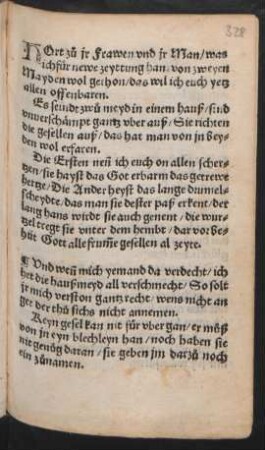 328
HOrt zů jr Frawen vnd jr Man/was
ich für newe zeyttung han/von zweyen
Mayden wol gethon/das wil ich euch yetz
allen offenbaren.
Es seindt zwů meyd in einem hauß/sind
vnuerschämpt gantz vber auß/Sie richten
die gesellen auß/das hat man von jn bey-
den wol erfaren.
Die Ersten neñ ich euch on allen scher-
tzen/sie hayst das Got erbarm das getrewe
hertze/Die Ander heyst das lange
scheydte/das man sie dester paß erkent/der
lang hans wirdt sie auch genent/die wur-
tzel tregt sie vnter dem hembt/dar vor be-
hüt Gott alle frum̃e gesellen al zeyte.
¶ Vnd weñ mich yemand da verdecht/ich
het die haußmeyd all verschmecht/So solt
jr mich verston gantz recht/wens nicht an
get der thů sichs nicht annemen.
Keyn gesel kan nit für vber gan/er můß
von jn eyn blechleyn han/noch haben sie
nit genůg daran/sie geben jm dartzů noch
ein zůnamen.